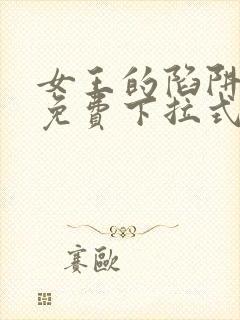 女王的陷阱
免费下拉式
赛欧